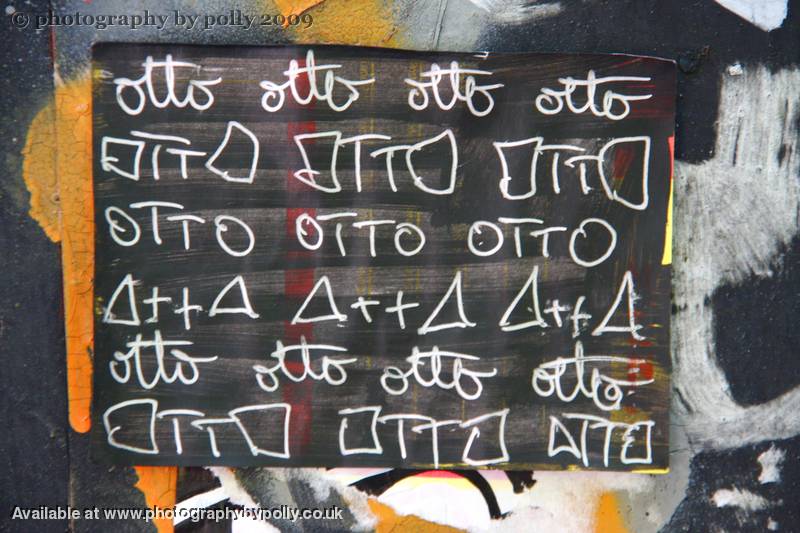 © photography by polly 2009
otto otto otto otto
OTTO OTTO OTTO
OTTO OTTO OTTO
Δ++Δ Δ++Δ Δ++Δ
otto otto otto otto
OTTO OTTO OTTO
Available at www.photographybypolly.co.uk